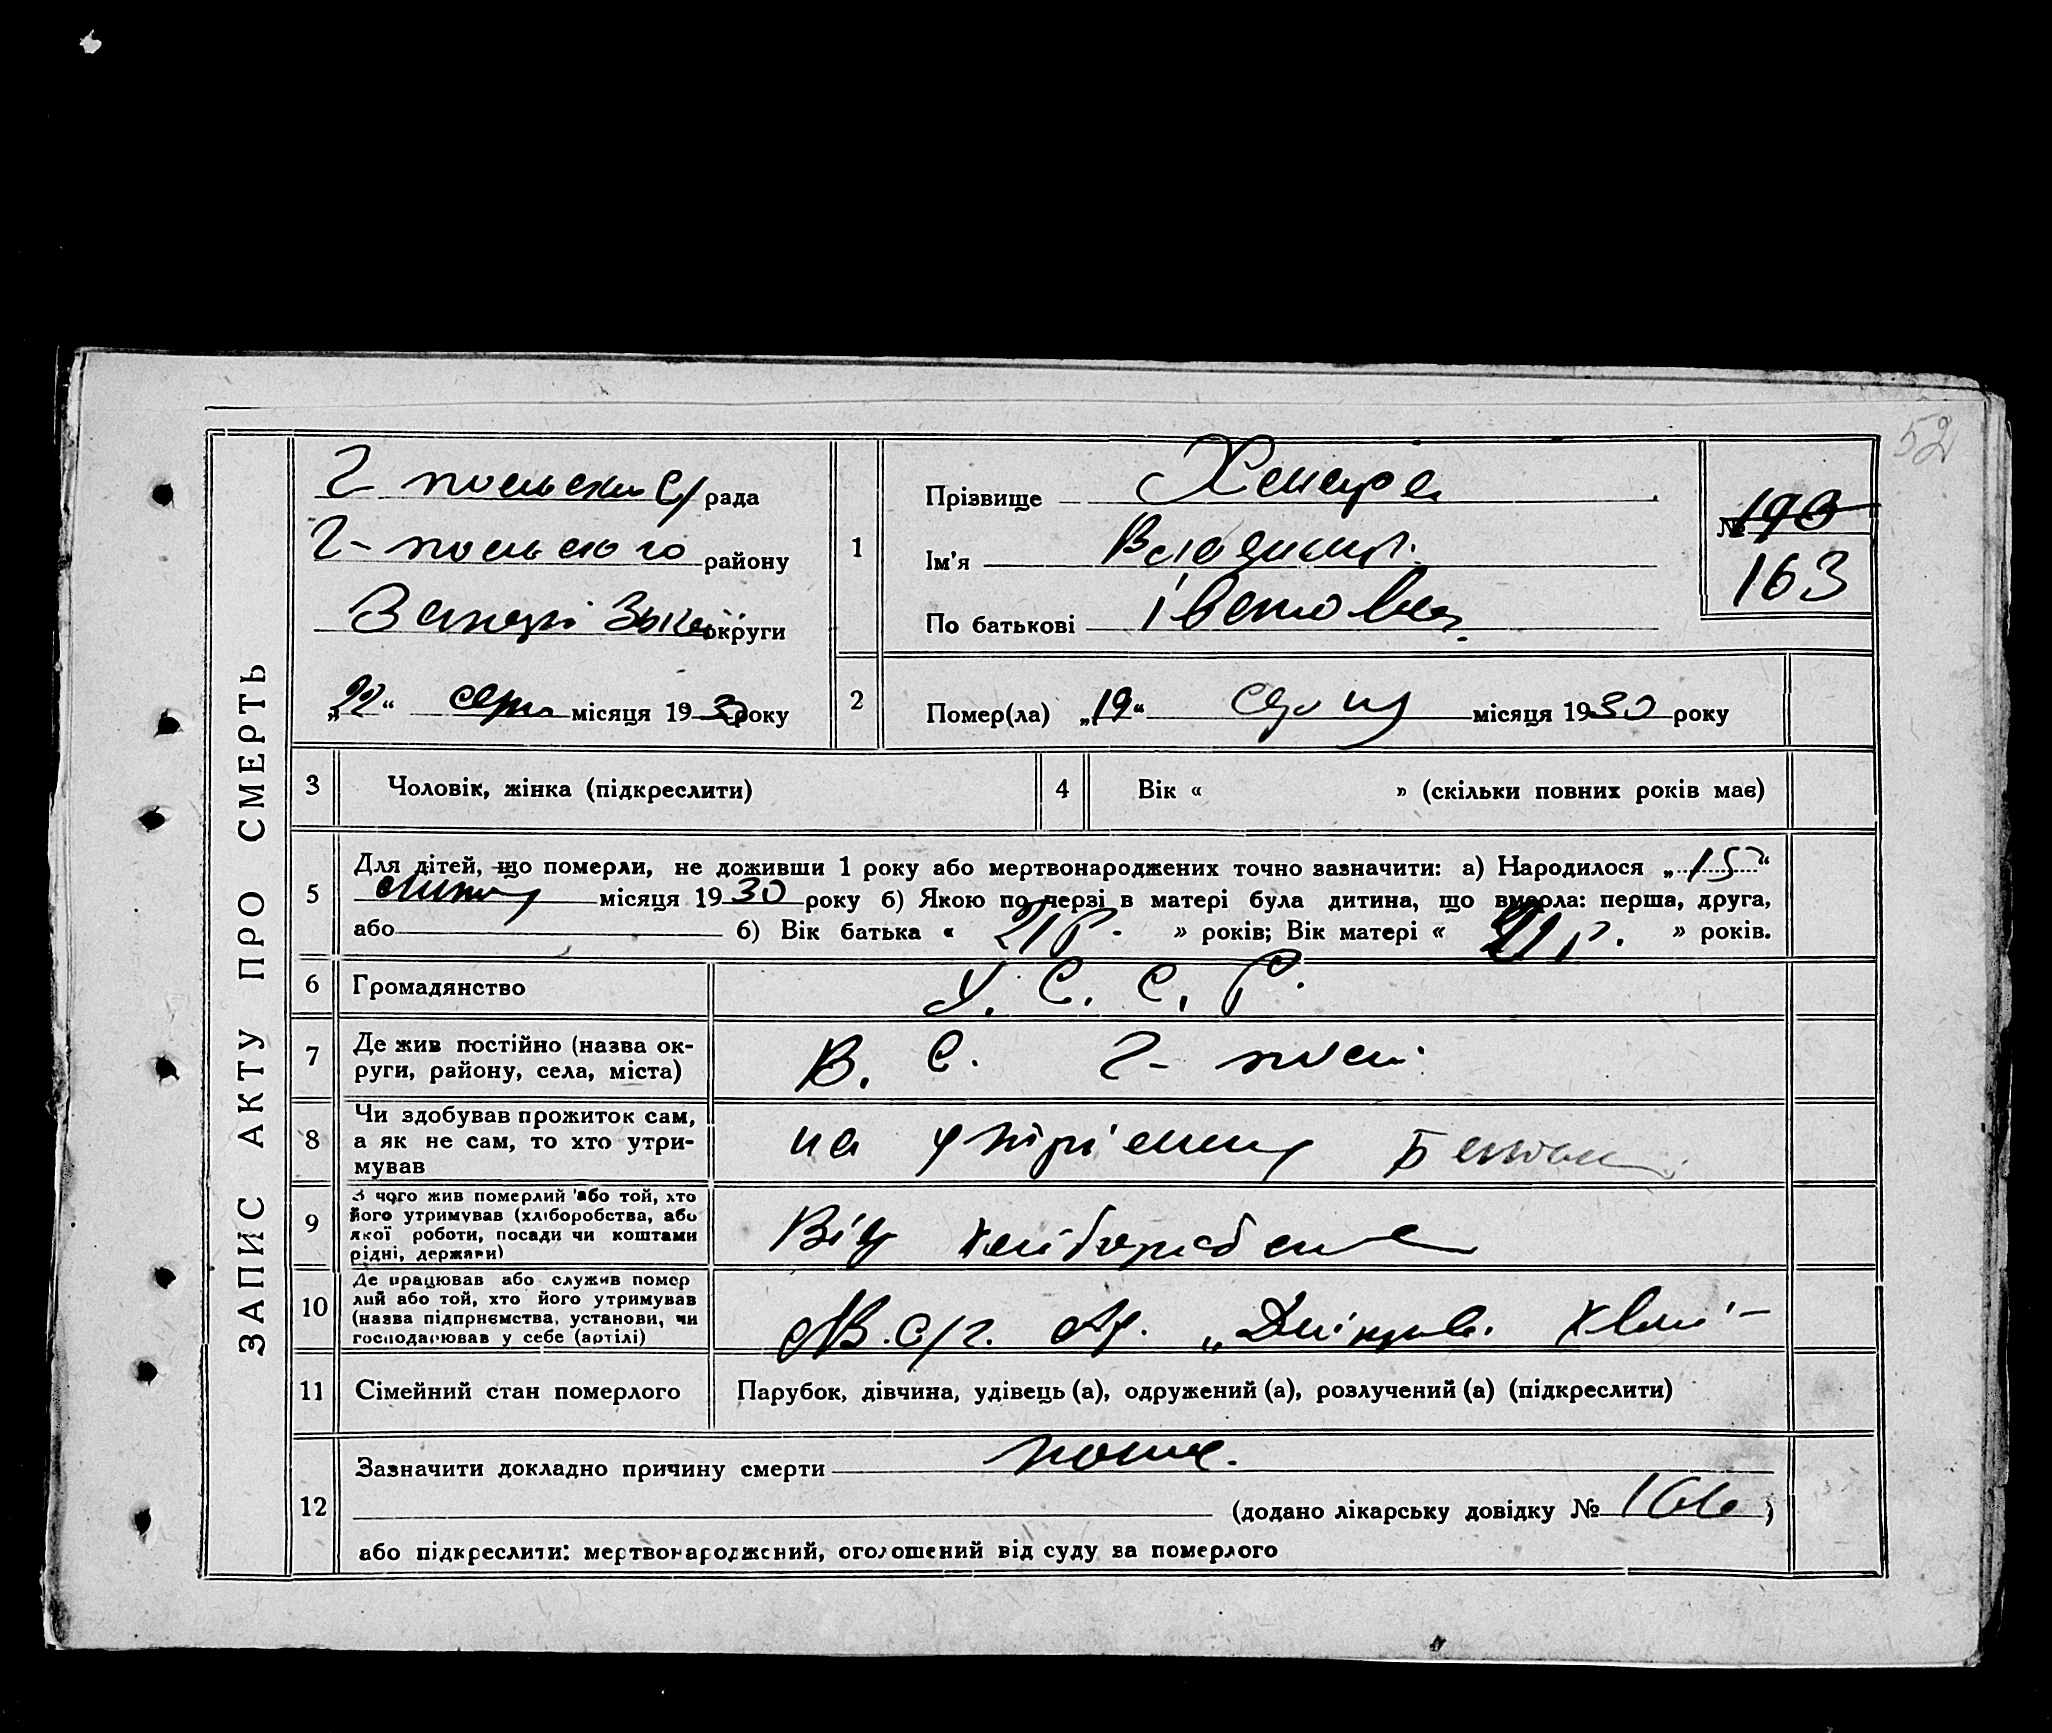 52
ЗАПИС АКТУ ПРО СМЕРТЬ
Г польська С/рада
Г-польского району
Запорізької округи
„22“ серп місяця 1930 року
1
Прізвище
Ім'я Владимир.
По батькові Іванович.
№ 190
163
2
Помер(ла) „19“ серпня місяця 1930 року
3 Чоловік, жінка (підкреслити)
4 Вік « » (скільки повних років має)
5
Для дітей, що померли, не доживши 1 року або мертвонароджених точно зазначити: а) Народилося „15“
липня місяця 1930 року б) Якою по черзі в матері була дитина, що вмерла: перша, друга,
або б) Вік батька « 21 р. » років; Вік матері « 21 р. » років.
6 Громадянство У. С. С. Р.
7 Де жив постійно (назва ок-
руги, району, села, міста)
В. С. Г-поль
8 Чи здобував прожиток сам,
а як не сам, то хто утри-
мував
на утрі
9 З чого жив померлий або той, хто
його утримував (хліборобства, або
якої роботи, посади чи коштами
рідні, держави)
Від хліборобства
10 Де працював або служив помер
лий або той, хто його утримував
(назва підприємства, установи, чи
господарював у себе (артілі)
„Дніпров. хвилі-
11 Сімейний стан померлого
Парубок, дівчина, удівець (а), одружений (а), розлучений (а) (підкреслити)
12
Зазначити докладно причину смерти понос.
(додано лікарську довідку № 166)
або підкреслити: мертвонароджений, оголошений від суду за померлого